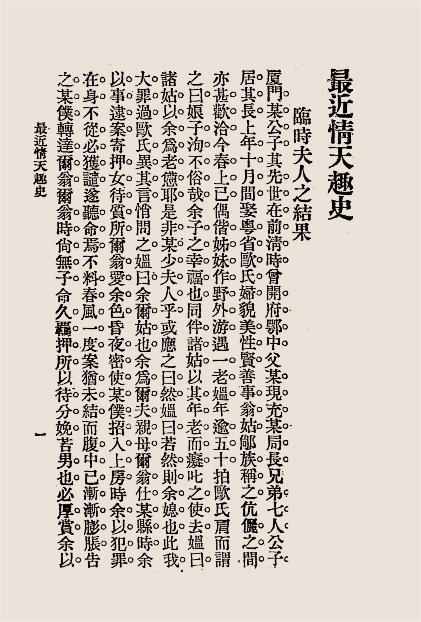 最近情天趣史
臨時夫人之結果
厦門某公子其先世在前清時曾開府鄂中父某現充某局長兄弟七人公子
居其長上年十月間娶粵省歐氏婦貌美性賢善事翁姑鄰族稱之伉儷之間
亦甚歡洽今春上巳偶偕姊妹作野外游遇一老嫗年逾五十拍歐氏肩而謂
之曰娘子洵不俗哉余子之幸福也同伴諸姑以其年老而癡叱之使去嫗曰
諸姑以余爲老憊耶是非某少夫人乎或應之曰然嫗曰若然則余媳也此我
大罪過歐氏異其言悄問之嫗曰余爾姑也余爲爾夫親母爾翁仕某縣時余
以事逮案寄押女待質所爾翁愛余色昏夜密使某僕招入上房時余以犯罪
在身不從必獲譴遂聽命焉不料春風一度案猶未結而腹中已漸漸膨脹告
之某僕轉達爾翁爾翁時尙無子命久羈押所以待分娩若男也必厚賞余以
最近情天趣史
一